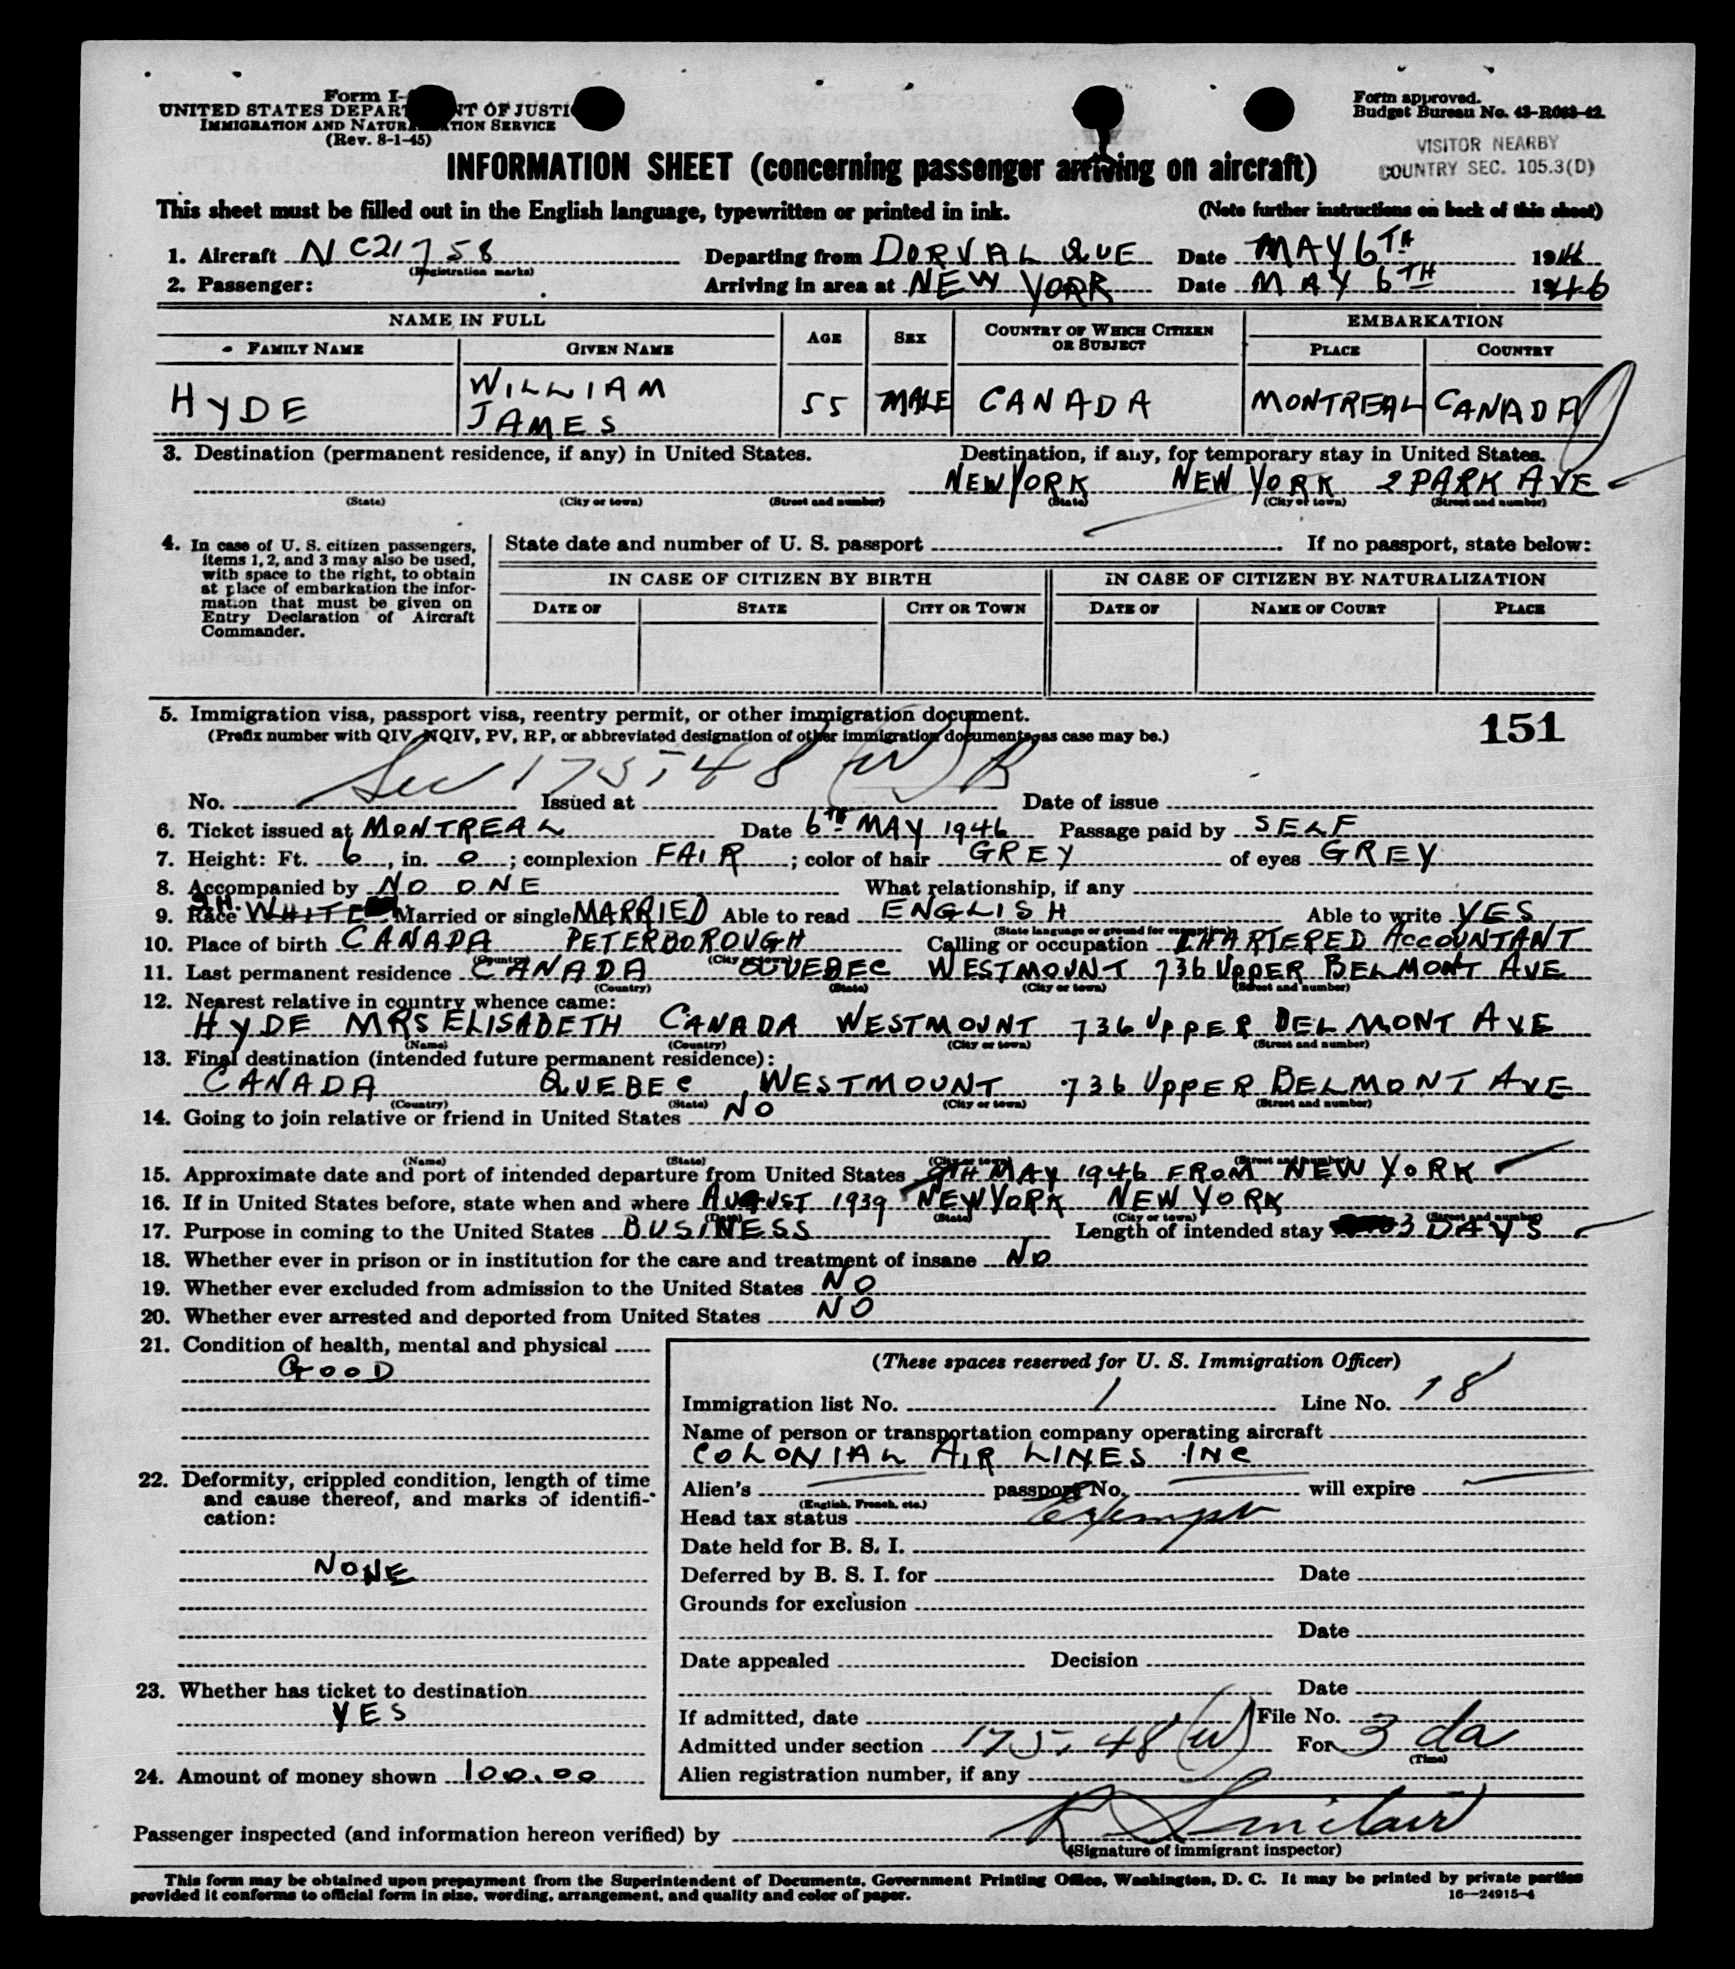 Form I-
UNITED STATES DEPARTMENT OF JUSTICE
IMMIGRATION AND NATURALIZATION SERVICE
(Rev. 8-1-45)
Form approved.
Budget Bureau No. 43-R063-42.
VISITOR NEARBY
COUNTRY SEC. 105.3(D)
INFORMATION SHEET (concerning passenger arriving on aircraft)
This sheet must be filled out in the English language, typewritten or printed in ink. (Note further instructions on back of this sheet)
1. Aircraft NC21758 Departing from DORVAL QUE Date MAY 6TH 1946
(Registration marks)
2. Passenger: Arriving in area at NEW YORK Date MAY 6TH 1946
NAME IN FULL AGE SEX COUNTRY OF WHICH CITIZEN OR SUBJECT EMBARKATION
FAMILY NAME GIVEN NAME PLACE COUNTRY
HYDE WILLIAM JAMES 55 MALE CANADA MONTREAL CANADA
3. Destination (permanent residence, if any) in United States. Destination, if any, for temporary stay in United States.
NEW YORK NEW YORK 2 PARK AVE
(State) (City or town) (Street and number) (State) (City or town) (Street and number)
4. In case of U. S. citizen passengers, items 1, 2, and 3 may also be used, with space to the right, to obtain at place of embarkation the information that must be given on Entry Declaration of Aircraft Commander.
State date and number of U. S. passport If no passport, state below:
IN CASE OF CITIZEN BY BIRTH IN CASE OF CITIZEN BY NATURALIZATION
DATE OF STATE CITY OR TOWN DATE OF NAME OF COURT PLACE
5. Immigration visa, passport visa, reentry permit, or other immigration document.
(Prefix number with QIV, NQIV, PV, RP, or abbreviated designation of other immigration documents, as case may be.)
151
Sec 175.48 (W) B
No. Issued at Date of issue
6. Ticket issued at MONTREAL Date 6TH MAY 1946 Passage paid by SELF
7. Height: Ft. 6, in. 0; complexion FAIR; color of hair GREY of eyes GREY
8. Accompanied by NO ONE What relationship, if any
9. Race WHITE Married or single MARRIED Able to read ENGLISH Able to write YES
(State language or ground for exemption)
10. Place of birth CANADA PETERBOROUGH Calling or occupation CHARTERED ACCOUNTANT
(Country) (City or town)
11. Last permanent residence CANADA QUEBEC WESTMOUNT 736 UPPER BELMONT AVE
(Country) (State) (City or town) (Street and number)
12. Nearest relative in country whence came:
HYDE MRS ELISABETH CANADA WESTMOUNT 736 UPPER BELMONT AVE
(Name) (Country) (City or town) (Street and number)
13. Final destination (intended future permanent residence):
CANADA QUEBEC, WESTMOUNT 736 UPPER BELMONT AVE
(Country) (State) (City or town) (Street and number)
14. Going to join relative or friend in United States NO
(Name) (State) (City or town) (Street and number)
15. Approximate date and port of intended departure from United States 9TH MAY 1946 FROM NEW YORK
16. If in United States before, state when and where AUGUST 1939 NEW YORK NEW YORK
(Date) (State) (City or town) (Street and number)
17. Purpose in coming to the United States BUSINESS Length of intended stay 3 DAYS
18. Whether ever in prison or in institution for the care and treatment of insane NO
19. Whether ever excluded from admission to the United States NO
20. Whether ever arrested and deported from United States NO
21. Condition of health, mental and physical
GOOD
22. Deformity, crippled condition, length of time
and cause thereof, and marks of identifi-
cation:
NONE
23. Whether has ticket to destination
YES
24. Amount of money shown 100.00
(These spaces reserved for U. S. Immigration Officer)
Immigration list No. 1 Line No. 18
Name of person or transportation company operating aircraft
COLONIAL AIR LINES INC
Alien's passport No. will expire
(English, French, etc.)
Head tax status Exempt
Date held for B. S. I.
Deferred by B. S. I. for Date
Grounds for exclusion
Date
Date appealed Decision
Date
If admitted, date File No.
Admitted under section 175.48 (W) For 3 da
(Time)
Alien registration number, if any
Passenger inspected (and information hereon verified) by R Sinclair
(Signature of immigrant inspector)
This form may be obtained upon prepayment from the Superintendent of Documents, Government Printing Office, Washington, D. C. It may be printed by private parties
provided it conforms to official form in size, wording, arrangement, and quality and color of paper. 16—24915-4